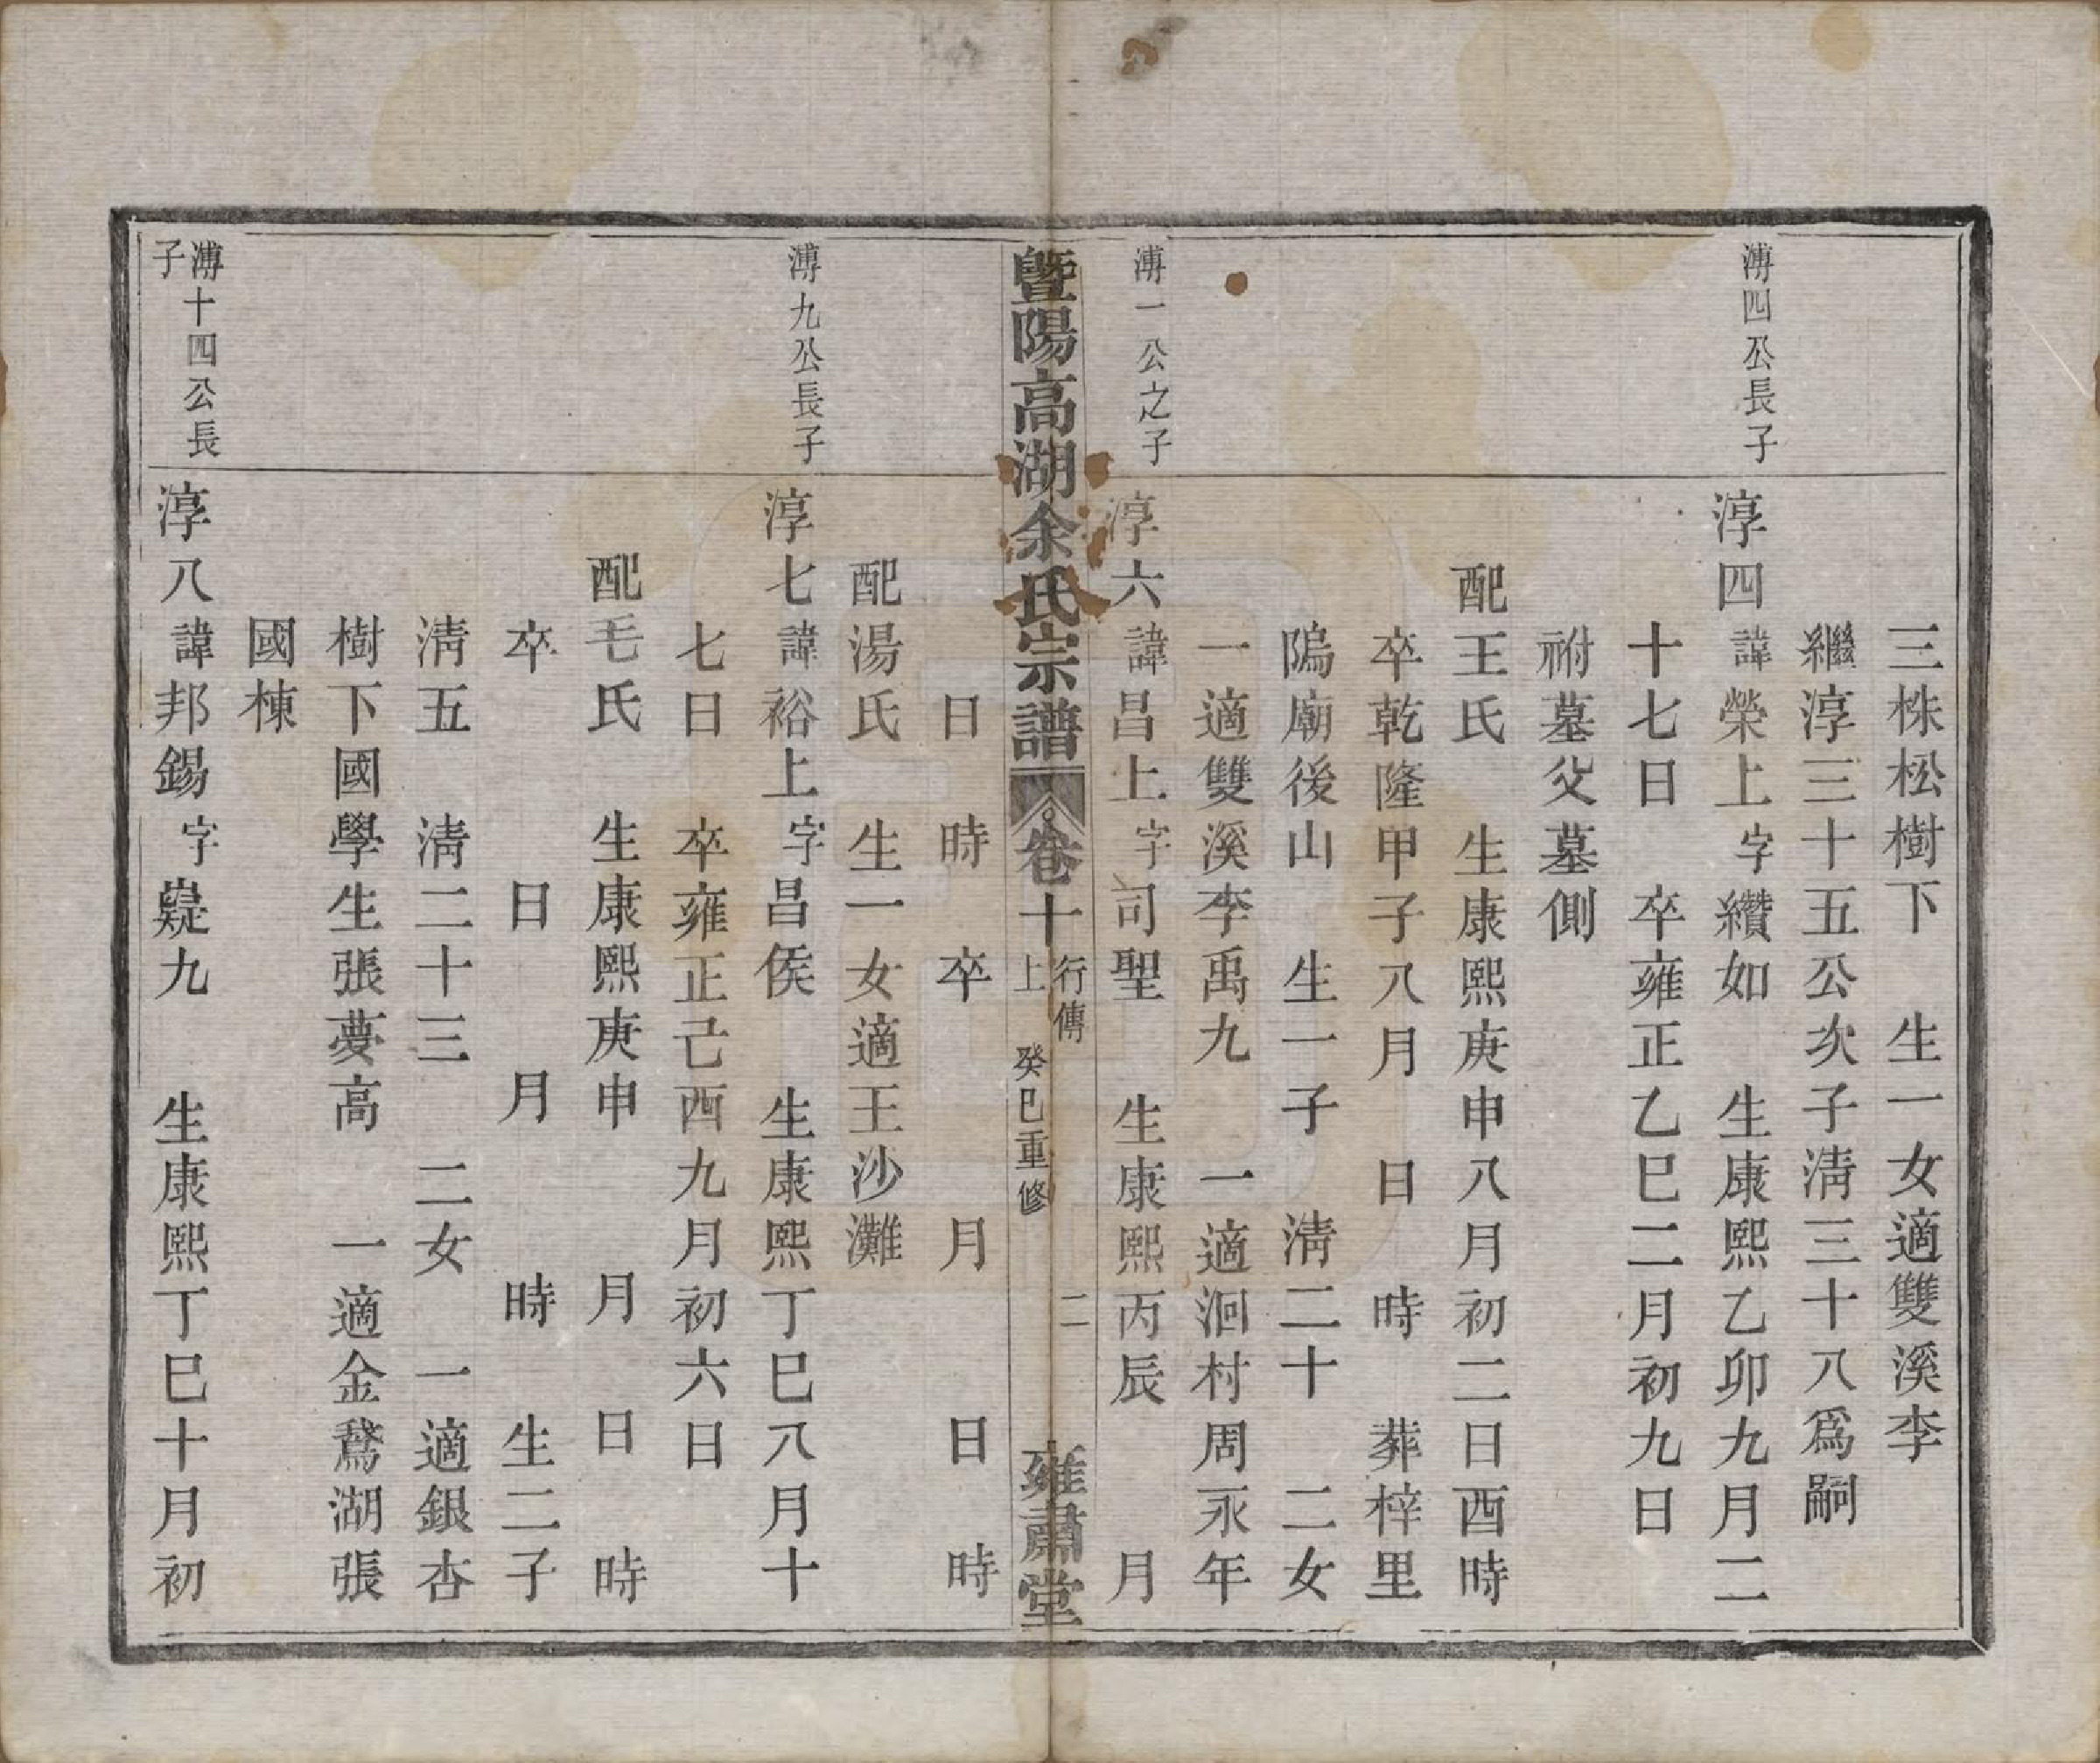 三株松樹下 生一女適雙溪李
繼淳三十五公次子淸三十八爲嗣
溥四公長子
淳四諱榮上字纘如 生康熙乙卯九月二
十七日 卒雍正乙巳二月初九日
祔墓父墓側
配王氏 生康熙庚申八月初二日酉時
卒乾隆甲子八月 日 時 葬梓里
隖廟後山 生一子 淸二十 二女
一適雙溪李禹九 一適泂村周永年
溥一公之子
淳六諱昌上字司聖 生康熙丙辰 月
暨陽高湖余氏宗譜 卷十上 行傳 癸巳重修 二 雍肅堂
日 時 卒 月 日 時
配湯氏 生一女適王沙灘
溥九公長子
淳七諱裕上字昌侯 生康熙丁巳八月十
七日 卒雍正己酉九月初六日
配毛氏 生康熙庚申 月 日 時
卒 日 月 時 生二子
淸五 淸二十三 二女 一適銀杏
樹下國學生張夢高 一適金鵞湖張
國棟
溥十四公長
子
淳八諱邦錫字嶷九 生康熙丁巳十月初